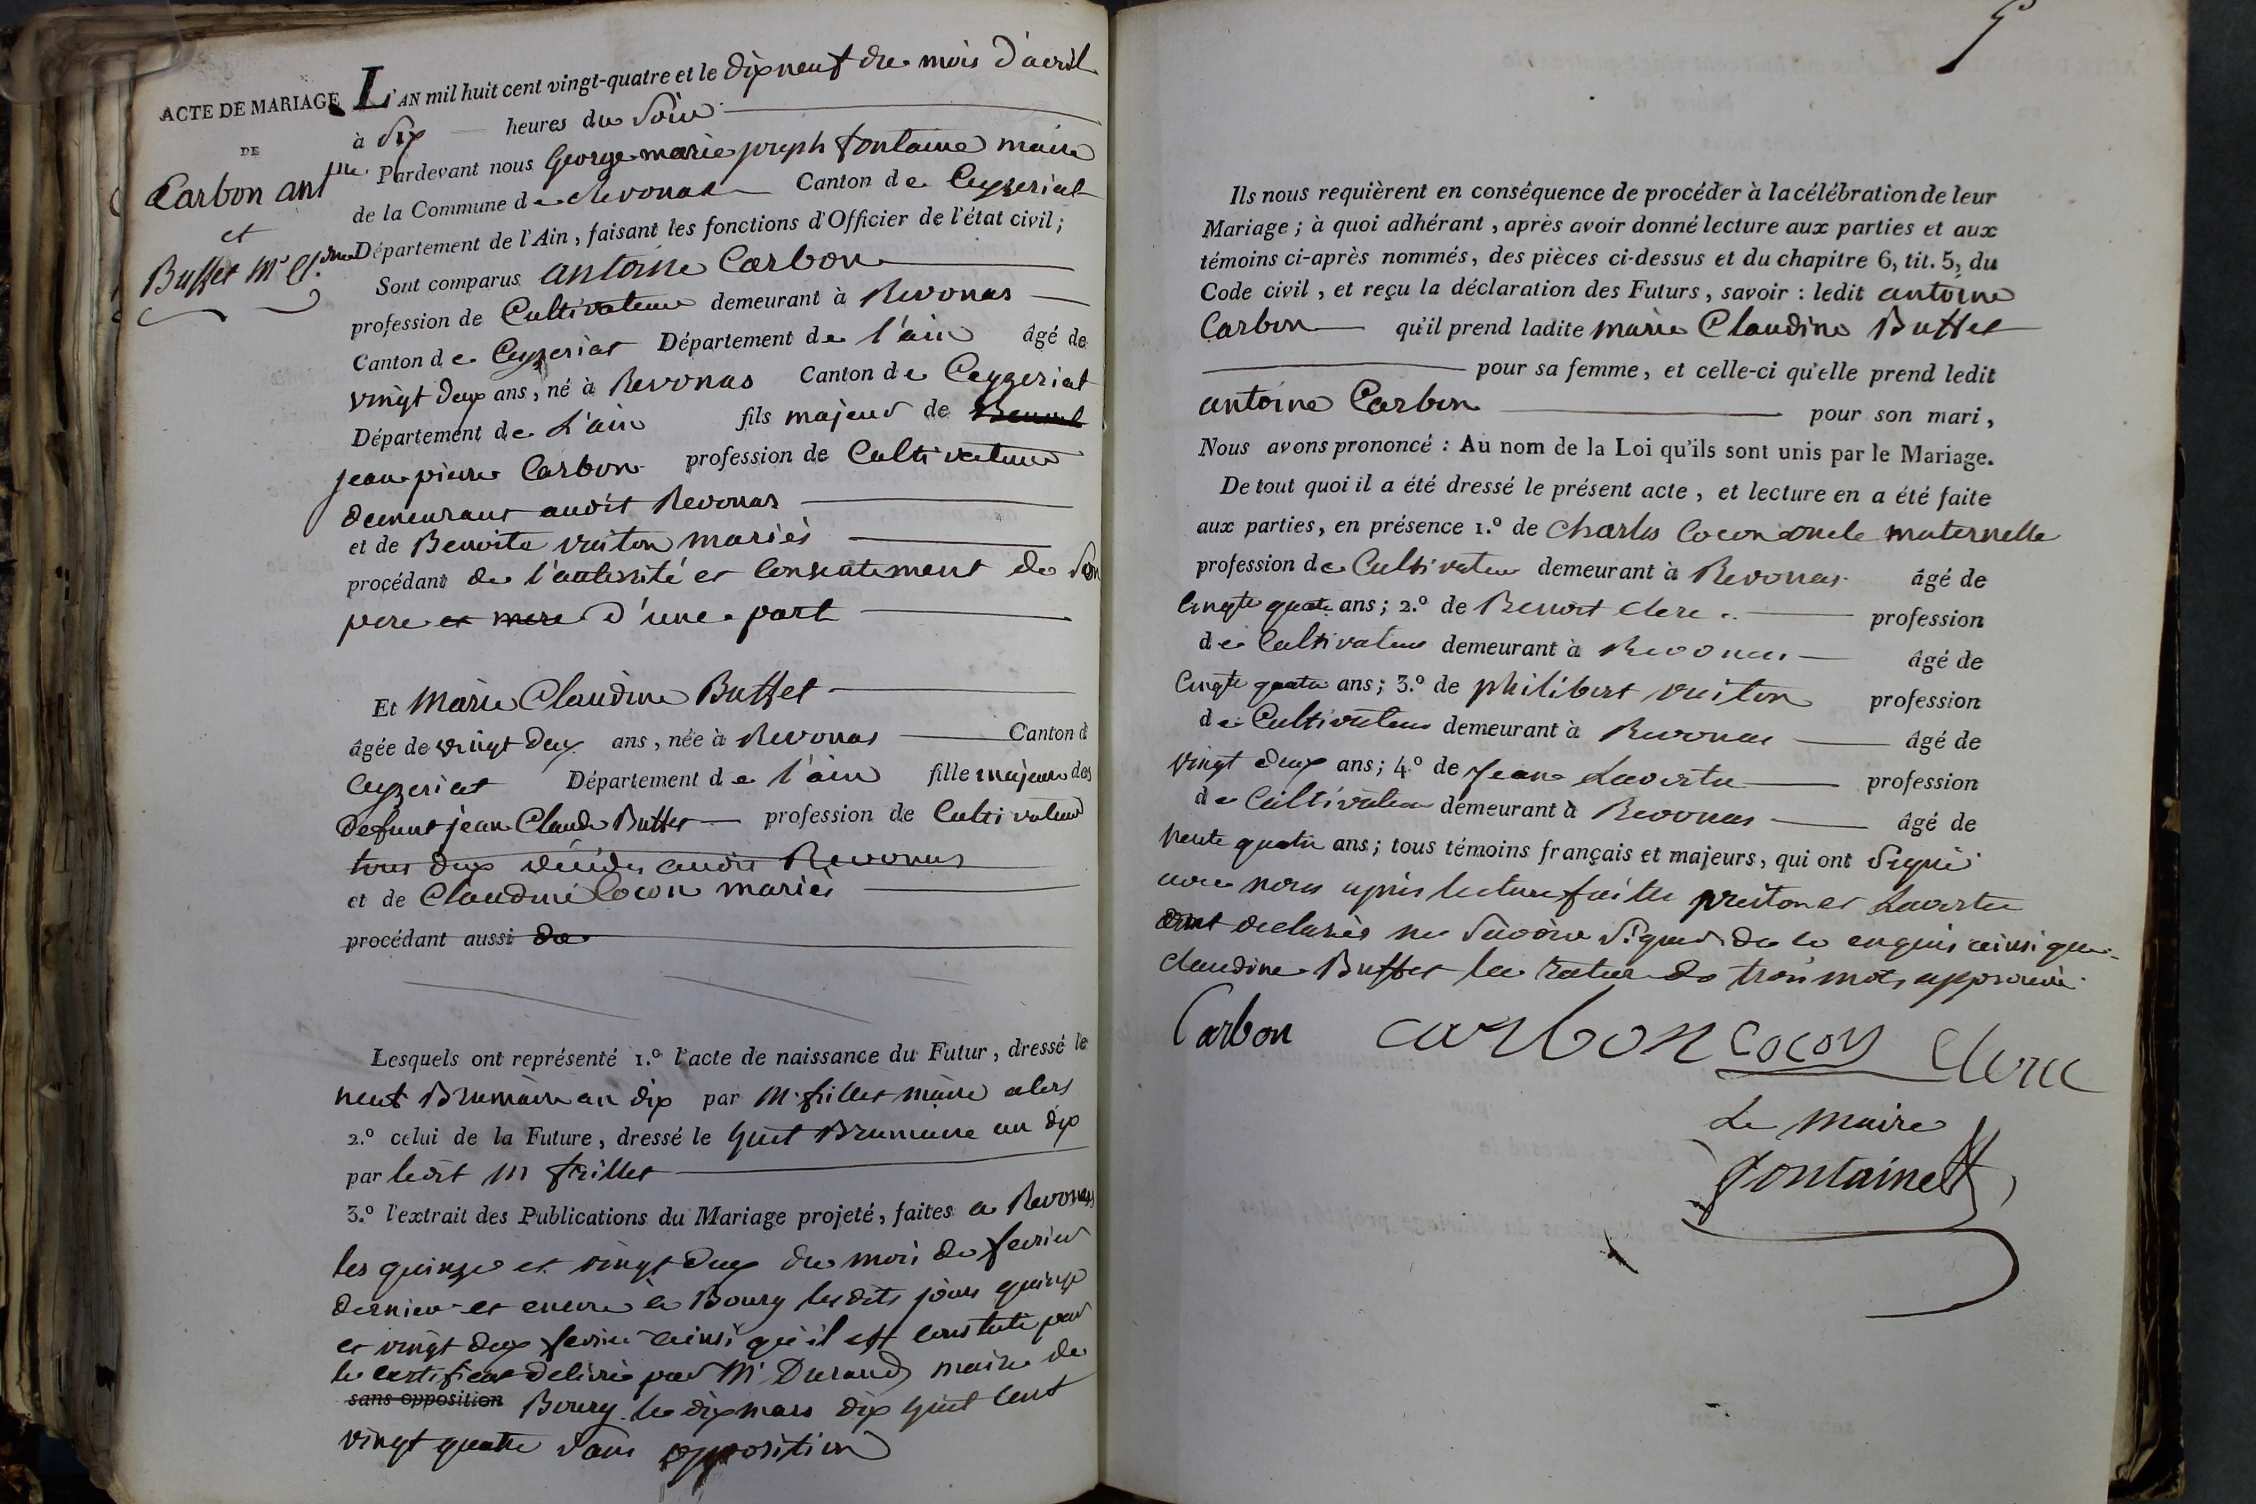 ACTE DE MARIAGE
DE
Carbon ant.ne
et
Buffet M.e Cl.dine
L'AN mil huit cent vingt-quatre et le dix neuf du mois d'avril
à Six heures du Soir
Pardevant nous George marie joseph fontaine maire
de la Commune de Revonas Canton de Ceyzeriat
Département de l'Ain, faisant les fonctions d'Officier de l'état civil;
Sont comparus antoine Carbon
profession de Cultivateur demeurant à Revonas
Canton de Ceyzeriat Département de l'ain âgé de
vingt deux ans, né à Revonas Canton de Ceyzeriat
Département de L'ain fils majeur de Benoit
jean pierre Carbon profession de Cultivateur
demeurant audit Revonas
et de Benoite vuiton mariés
procédant de l'autorité et Consentement de Son
pere et mere d'une part
Et Marie Claudine Buffet
âgée de vingt deux ans, née à Revonas Canton d
Ceyzeriat Département de l'ain fille majeure des
defunt jean Claude Buffet profession de Cultivateur
tous deux décédés audit Revonas
et de Claudine Cocon mariés
procédant aussi de
Lesquels ont représenté 1.º l'acte de naissance du Futur, dressé le
neuf Brumaire an dix par M. frillet maire alors
2.º celui de la Future, dressé le huit Brumaire an dix
par ledit M frillet
3.º l'extrait des Publications du Mariage projeté, faites a Revonas
les quinze et vingt deux du mois de fevrier
dernier et encore à Bourg les dits jours quinze
et vingt deux fevrier ainsi qu'il est constaté par
le certificat delivré par Mr Durand maire de
sans opposition Bourg le dix mars dix huit cent
vingt quatre sans opposition
5
Ils nous requièrent en conséquence de procéder à la célébration de leur
Mariage; à quoi adhérant, après avoir donné lecture aux parties et aux
témoins ci-après nommés, des pièces ci-dessus et du chapitre 6, tit. 5, du
Code civil, et reçu la déclaration des Futurs, savoir: ledit antoine
Carbon qu'il prend ladite marie Claudine Buffet
pour sa femme, et celle-ci qu'elle prend ledit
antoine Carbon pour son mari,
Nous avons prononcé: Au nom de la Loi qu'ils sont unis par le Mariage.
De tout quoi il a été dressé le présent acte, et lecture en a été faite
aux parties, en présence 1.º de Charles Cocon oncle maternelle
profession de Cultivateur demeurant à Revonas âgé de
Cinqte quatre ans; 2.º de Benoit Clerc profession
de Cultivateur demeurant à Revonas âgé de
Cinqte quatre ans; 3.º de philibert vuiton profession
de Cultivateur demeurant à Revonas âgé de
vingt deux ans; 4.º de Jean Lavertu profession
de Cultivateur demeurant à Revonas âgé de
trente quatre ans; tous témoins français et majeurs, qui ont Signé
avec nous après lecture faite vuiton et Lavertu
ont declarés ne Savoir Signer de ce enquis ainsi que
Claudine Buffet la rature de trois mots approuvée
Carbon carbon cocon Clerc
Le Maire
Fontaine